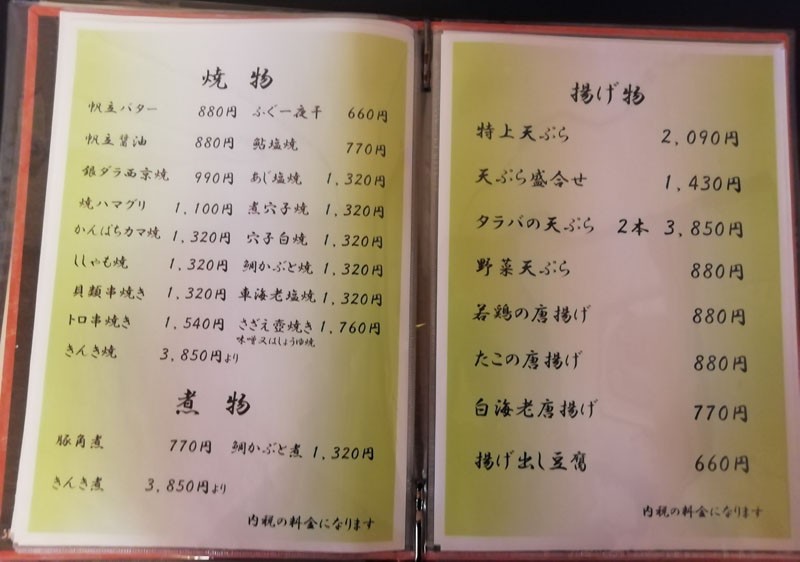 焼物
帆立バター 880円 ふぐ一夜干 660円
帆立醤油 880円 鮎塩焼 770円
銀ダラ西京焼 990円 あじ塩焼 1,320円
焼ハマグリ 1,100円 煮穴子焼 1,320円
かんぱちカマ焼 1,320円 穴子白焼 1,320円
ししゃも焼 1,320円 鯛かぶと焼 1,320円
貝類串焼き 1,320円 車海老塩焼 1,320円
トロ串焼き 1,540円 さざえ壺焼き 1,760円
味噌又はしょうゆ焼
きんき焼 3,850円より
煮物
豚角煮 770円 鯛かぶと煮 1,320円
きんき煮 3,850円より
内税の料金になります
揚げ物
特上天ぷら 2,090円
天ぷら盛合せ 1,430円
タラバの天ぷら 2本 3,850円
野菜天ぷら 880円
若鶏の唐揚げ 880円
たこの唐揚げ 880円
白海老唐揚げ 770円
揚げ出し豆腐 660円
内税の料金になります